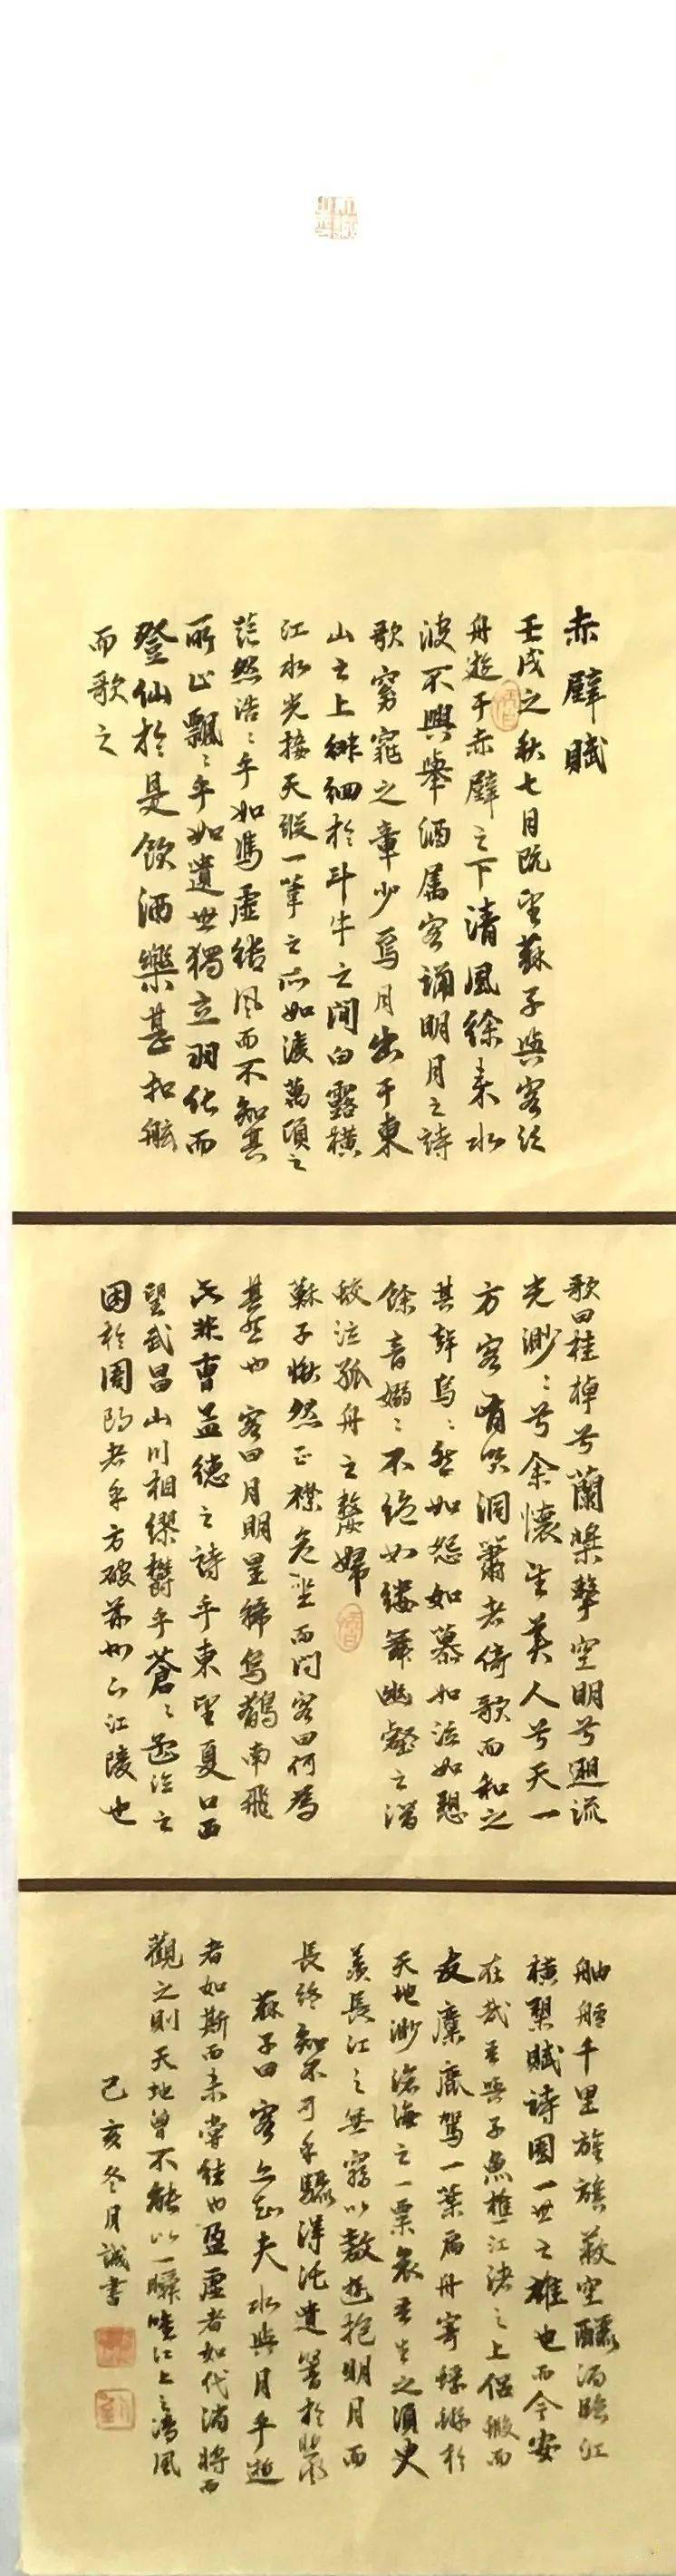 赤壁賦
壬戌之秋七月既望蘇子與客泛
舟遊于赤壁之下清風徐來水
波不興舉酒属客誦明月之詩
歌窈窕之章少焉月出于東
山之上徘徊於斗牛之間白露橫
江水光接天縱一葦之所如淩萬頃之
茫然浩〻乎如馮虛御風而不知其
所止飄〻乎如遺世獨立羽化而
登仙於是飲酒樂甚扣舷
而歌之
歌曰桂棹兮蘭槳擊空明兮遡流
光渺〻兮余懷望美人兮天一
方客有吹洞簫者倚歌而和之
其聲烏〻然如怨如慕如泣如愬
餘音嫋〻不绝如縷舞幽壑之潛
蛟泣孤舟之嫠婦
蘇子愀然正襟危坐而問客曰何為
其然也客曰月明星稀烏鵲南飛
此非曹孟德之詩乎東望夏口西
望武昌山川相繆鬱乎蒼〻
困於周郎者乎方破荊州下江陵也
舳艫千里旌旗蔽空釃酒臨江
橫槊賦詩固一世之雄也而今安
在哉吾與子魚樵江渚之上侶鰕而
友麋鹿駕一葉扁舟寄蜉蝣於
天地渺滄海之一粟哀吾生之須臾
羨長江之無窮以遨遊抱明月而
長終知不可乎驟得托遺響於
蘇子曰客亦知夫水與月乎逝
者如斯而未嘗往也盈虛者如代消將而
觀之則天地曾不能以一瞬唯江上之清風
己亥冬月誠書